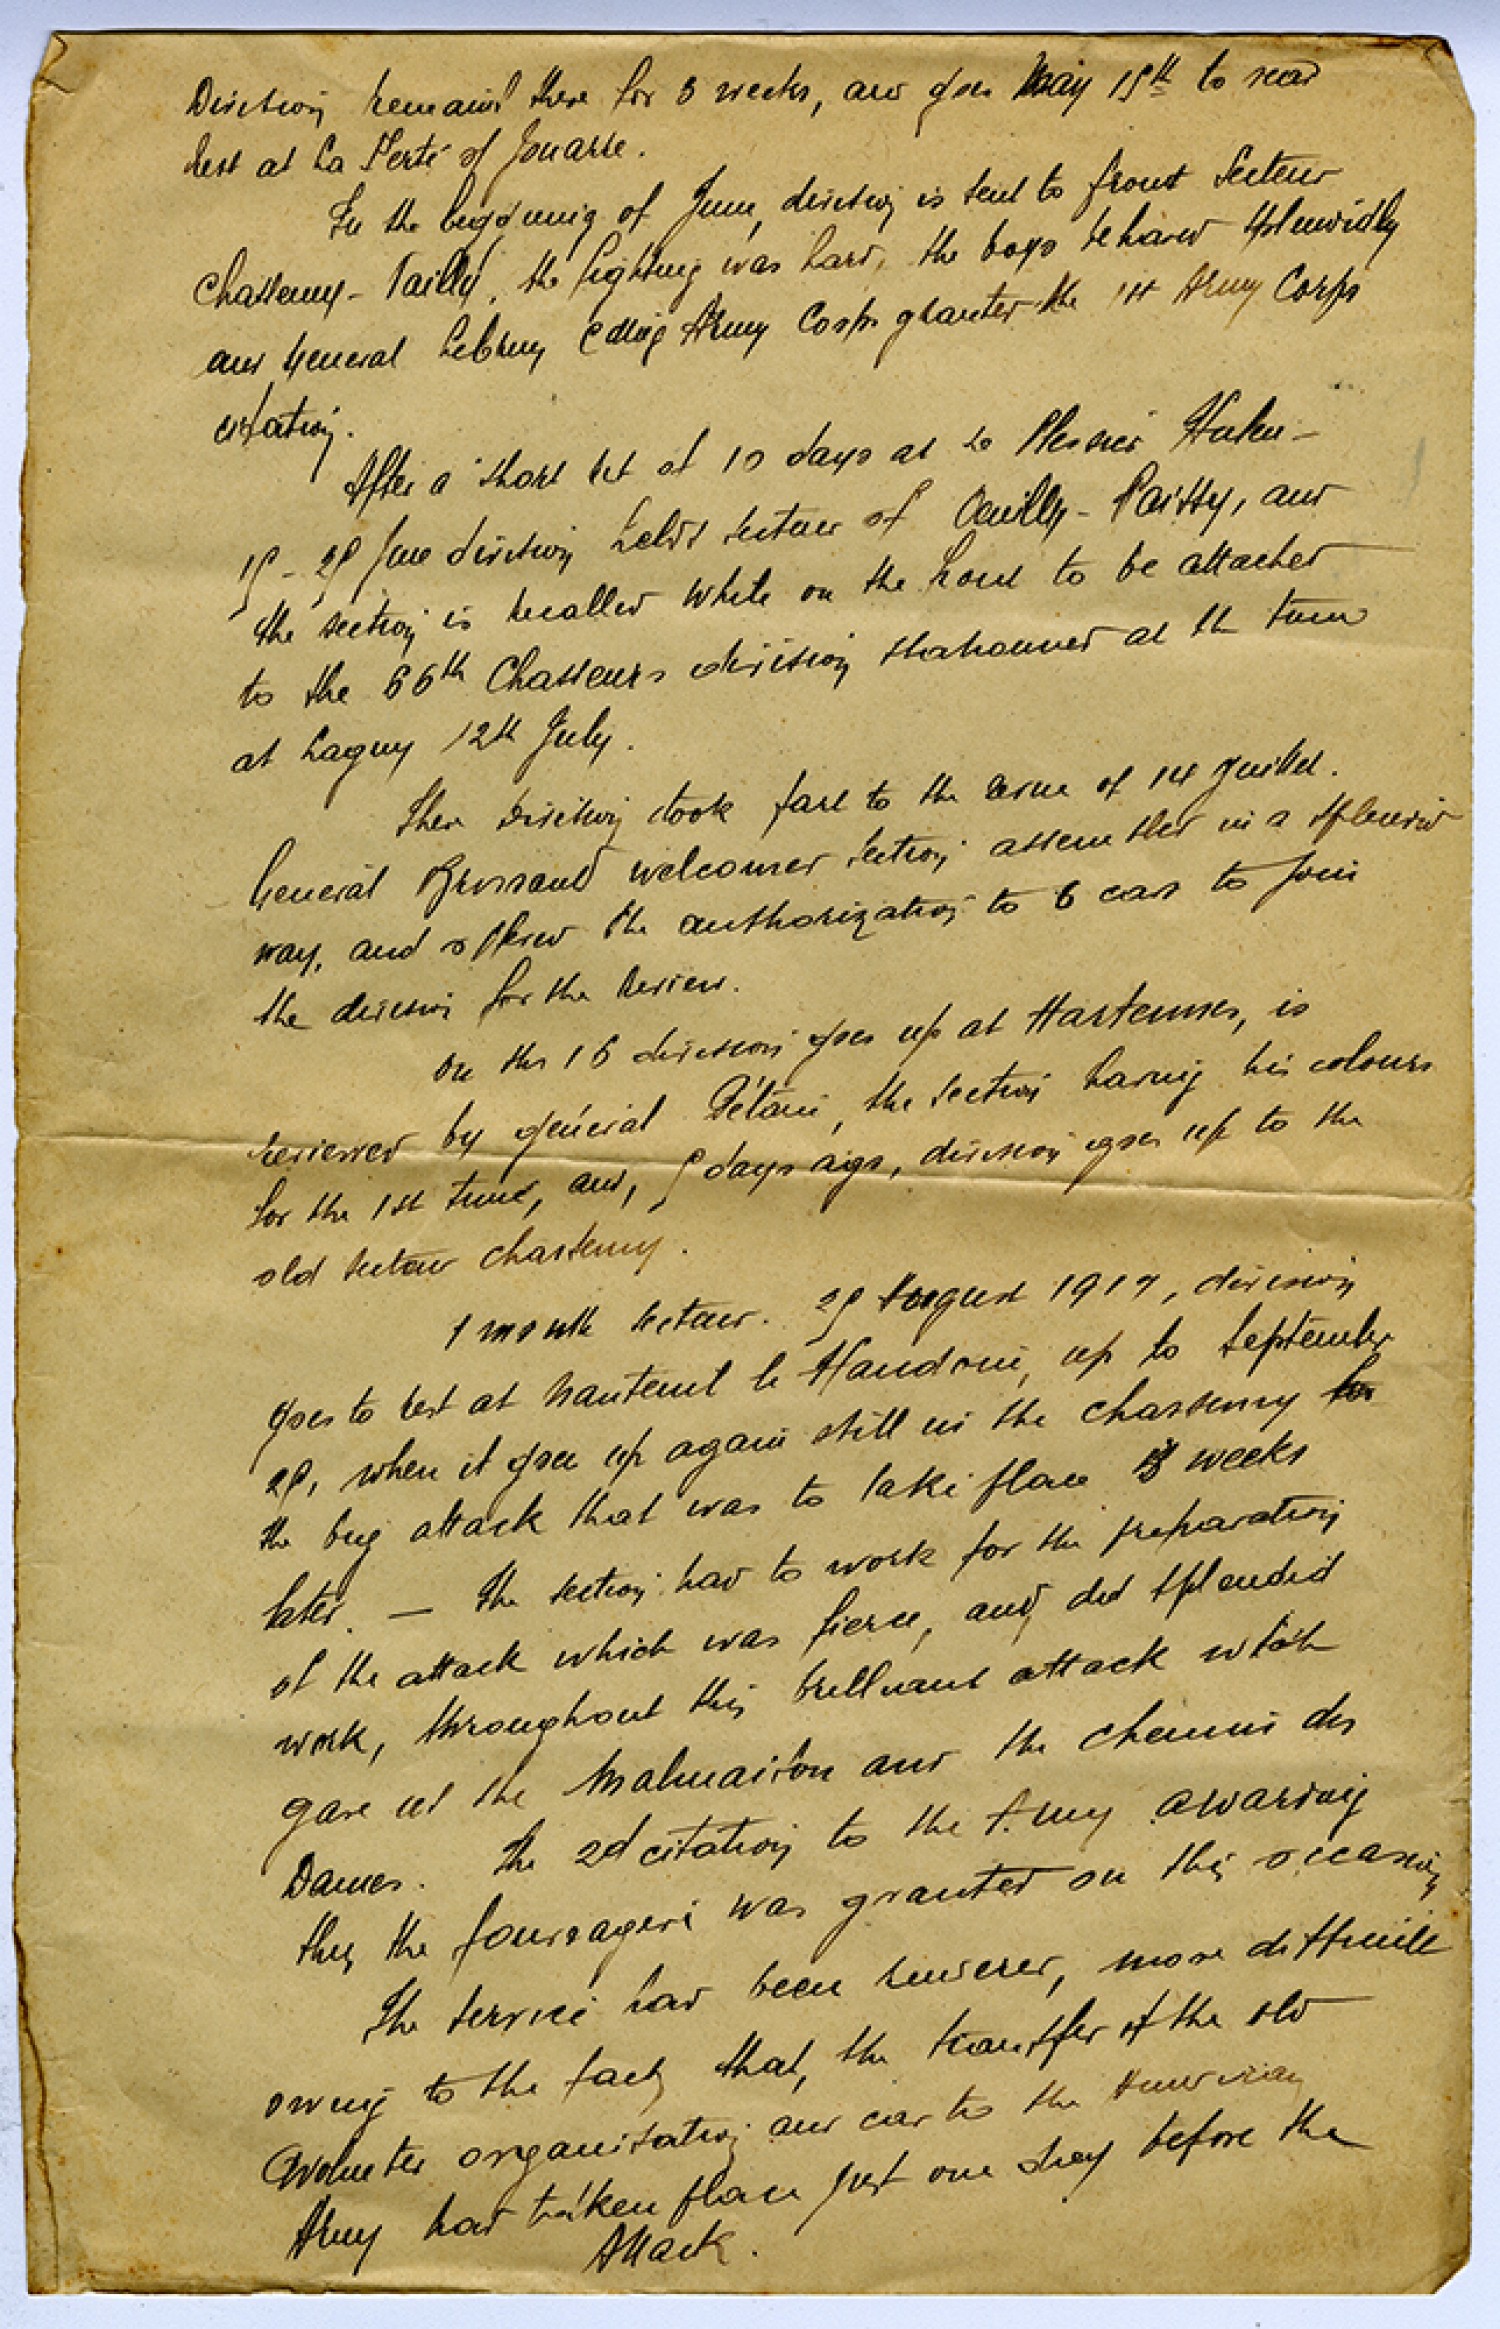 Division remained there for 3 weeks, and goes May 15th to rear
rest at La Ferté of Jouarre.
In the beginning of June, division is sent to front Secteur
Chassemy - Vailly, the fighting was hard, the boys behaved splendidly
and General Lebrun Cdting Army Corps granted the 1st Army Corps
citation.
After a short rest of 10 days at Le Plessier Huleu -
June division holds secteur of Oeuilly - Paissy, and
the section is recalled while on the front to be attached
to the 66th Chasseurs division stationned at the time
at Lagny 12th July.
Then division took part to the revue of 14 Juillet.
General welcomed section assembled in a splendid
way, and offered the authorization to 6 cars to join
the division for the review.
On the 16 division goes up at Hartennes, is
reviewed by général Pétain, the section having his colours
for the 1st time, and, days ago, division goes up to the
old secteur Chassemy.
1 month secteur. August 1917, division
goes to rest at Nanteuil le Haudouin, up to September
when it goes up again still in the Chassemy for
the big attack that was to take place 3 weeks
later. — The section had to work for the preparation
of the attack which was fierce, and did splendid
work, throughout this brilliant attack which
gave us the Malmaison and the Chemin des
Dames. The 2d citation to the Army awarding
thus the fourragere was granted on this occasion
The service had been rendered, more difficult
owing to the fact, that, the transfer of the old
Volunteer organisation and car to the American
Army had taken place just one day before the
Attack.